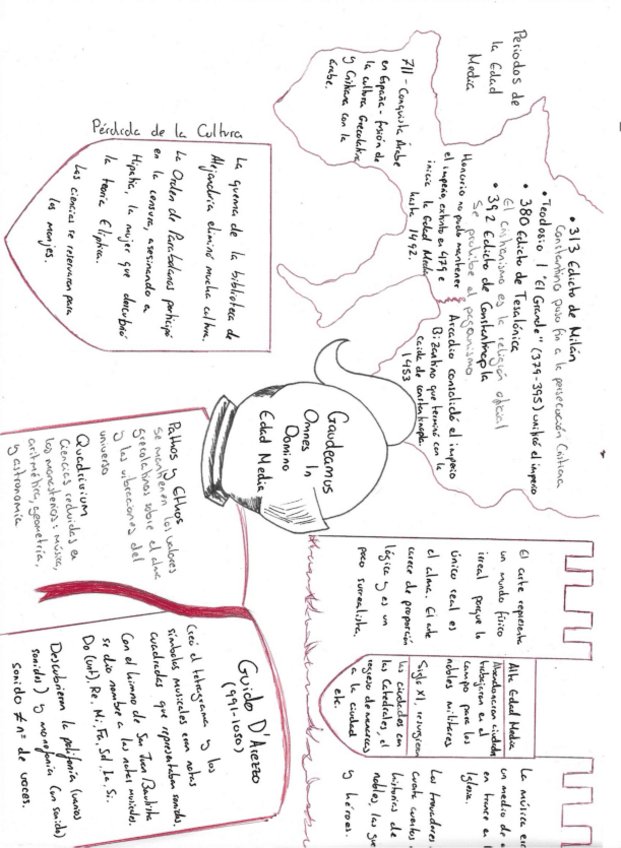 Periodos de
la Edad
Media
• 313 Edicto de Milán
Constantino puso fin a la persecución Cristiana
• Teodosio I "El Grande" (379-395) unificó el imperio
• 380 Edicto de Tesalónica
El cristianismo es la religión oficial
• 392 Edicto de Constantinopla
Se prohibe el paganismo
Honorio no pudo mantener
el imperio, extinto en 479 e
inicia la Edad Media
hasta 1492.
Arcadio consolidó el imperio
Bizantino que terminó con la
caída de constantinopla.
1453
711 - Conquista Árabe
en España - fusión de
la cultura Grecolatina
y Cristiana con la
árabe.
Pérdida de la Cultura
La quema de la biblioteca de
Alejandría eliminó mucha cultura.
La Orden de Parabolanos participó
en la censura, asesinando a
Hipatia, la mujer que descubrió
la teoría Elíptica.
Las ciencias se reservaron para
los monjes.
Gaudeamus
Omnes In
Domino
Edad Media
El arte representa
un mundo físico
irreal porque lo
único real es
el alma. El arte
carece de proporción
lógica y es un
poco surrealista.
Alta Edad Media
Abandonaron ciudades
trabajaron en el
campo para los
nobles militares
Siglo XI, resurgieron
las ciudades con
las Catedrales, el
regreso de monarcas
a la ciudad
etc.
La música era
un medio de
en trance en l
Iglesia.
Los trovadores
cuentos
historias de
nobles, las gue
y héroes.
Pathos y Ethos
se mantienen los valores
grecolatinos sobre el alma
y las vibraciones del
universo
Quadrivium
Ciencias recluidas en
los monasterios: música,
aritmética, geometría,
y astronomía
Guido D'Arezzo
(991-1050)
Creó el tetragrama y los
símbolos musicales eran notas
cuadradas que representaban sonidos.
Con el himno de San Juan Bautista
se dio nombre a las notas musicales.
Do (ut), Re, Mi, Fa, Sol, La, Si.
Descubrieron la polifonía (varios
sonidos) y monofonía (un sonido)
sonido ≠ nº de voces.